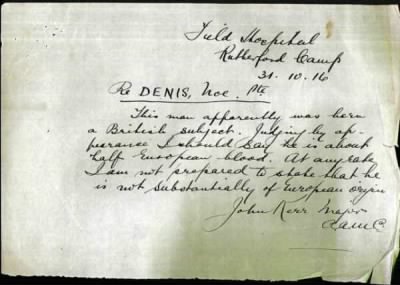 Field Hospital
Rutherford Camp
31.10.16
Re DENIS, Noe. Pte
This man apparently was born
a British subject. Judging by ap-
pearance I should say he is about
half European blood. At any rate
I am not prepared to state that he
is not substantially of European origin
John Kerr Major